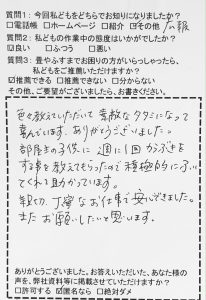 質問1:今回私どもをどちらでお知りになりましたか?
□電話帳 □ホームページ □紹介 ☑その他 広報
質問2:私どもの作業中の態度はいかがでしたか?
☑良い □ふつう □悪い
質問3:畳やふすまでお困りの方がいらっしゃったら、
私どもをご推薦いただけますか?
☑推薦できる □推薦できない □分からない
その他、ご要望がございましたら、お書きください。
色々教えしただいて素敵なタタミになって
喜んでいます。ありがとうございました。
部屋を子供に週に1回かぶきを
する事を教えてもらったので積極的にふい
てくれ助かってます。
親切、丁寧なお仕事で安心できました。
またお願いしたいと思います。
ありがとうございました。お答えいただいた、あなた様の
声を、弊社資料等に掲載させていただけますか?
□許可する ☑匿名なら □絶対ダメ